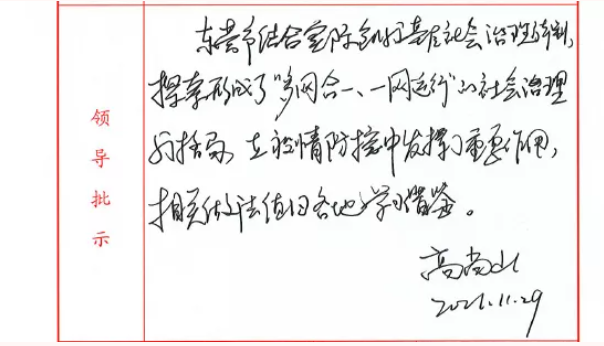 领导批示
东营市结合实际创新基层社会治理体制,
探索形成了"多网合一、一网运行"的社会治理
新格局,在疫情防控中发挥了重要作用,
相关做法值得各地学习借鉴。
高尚山
2021.11.29